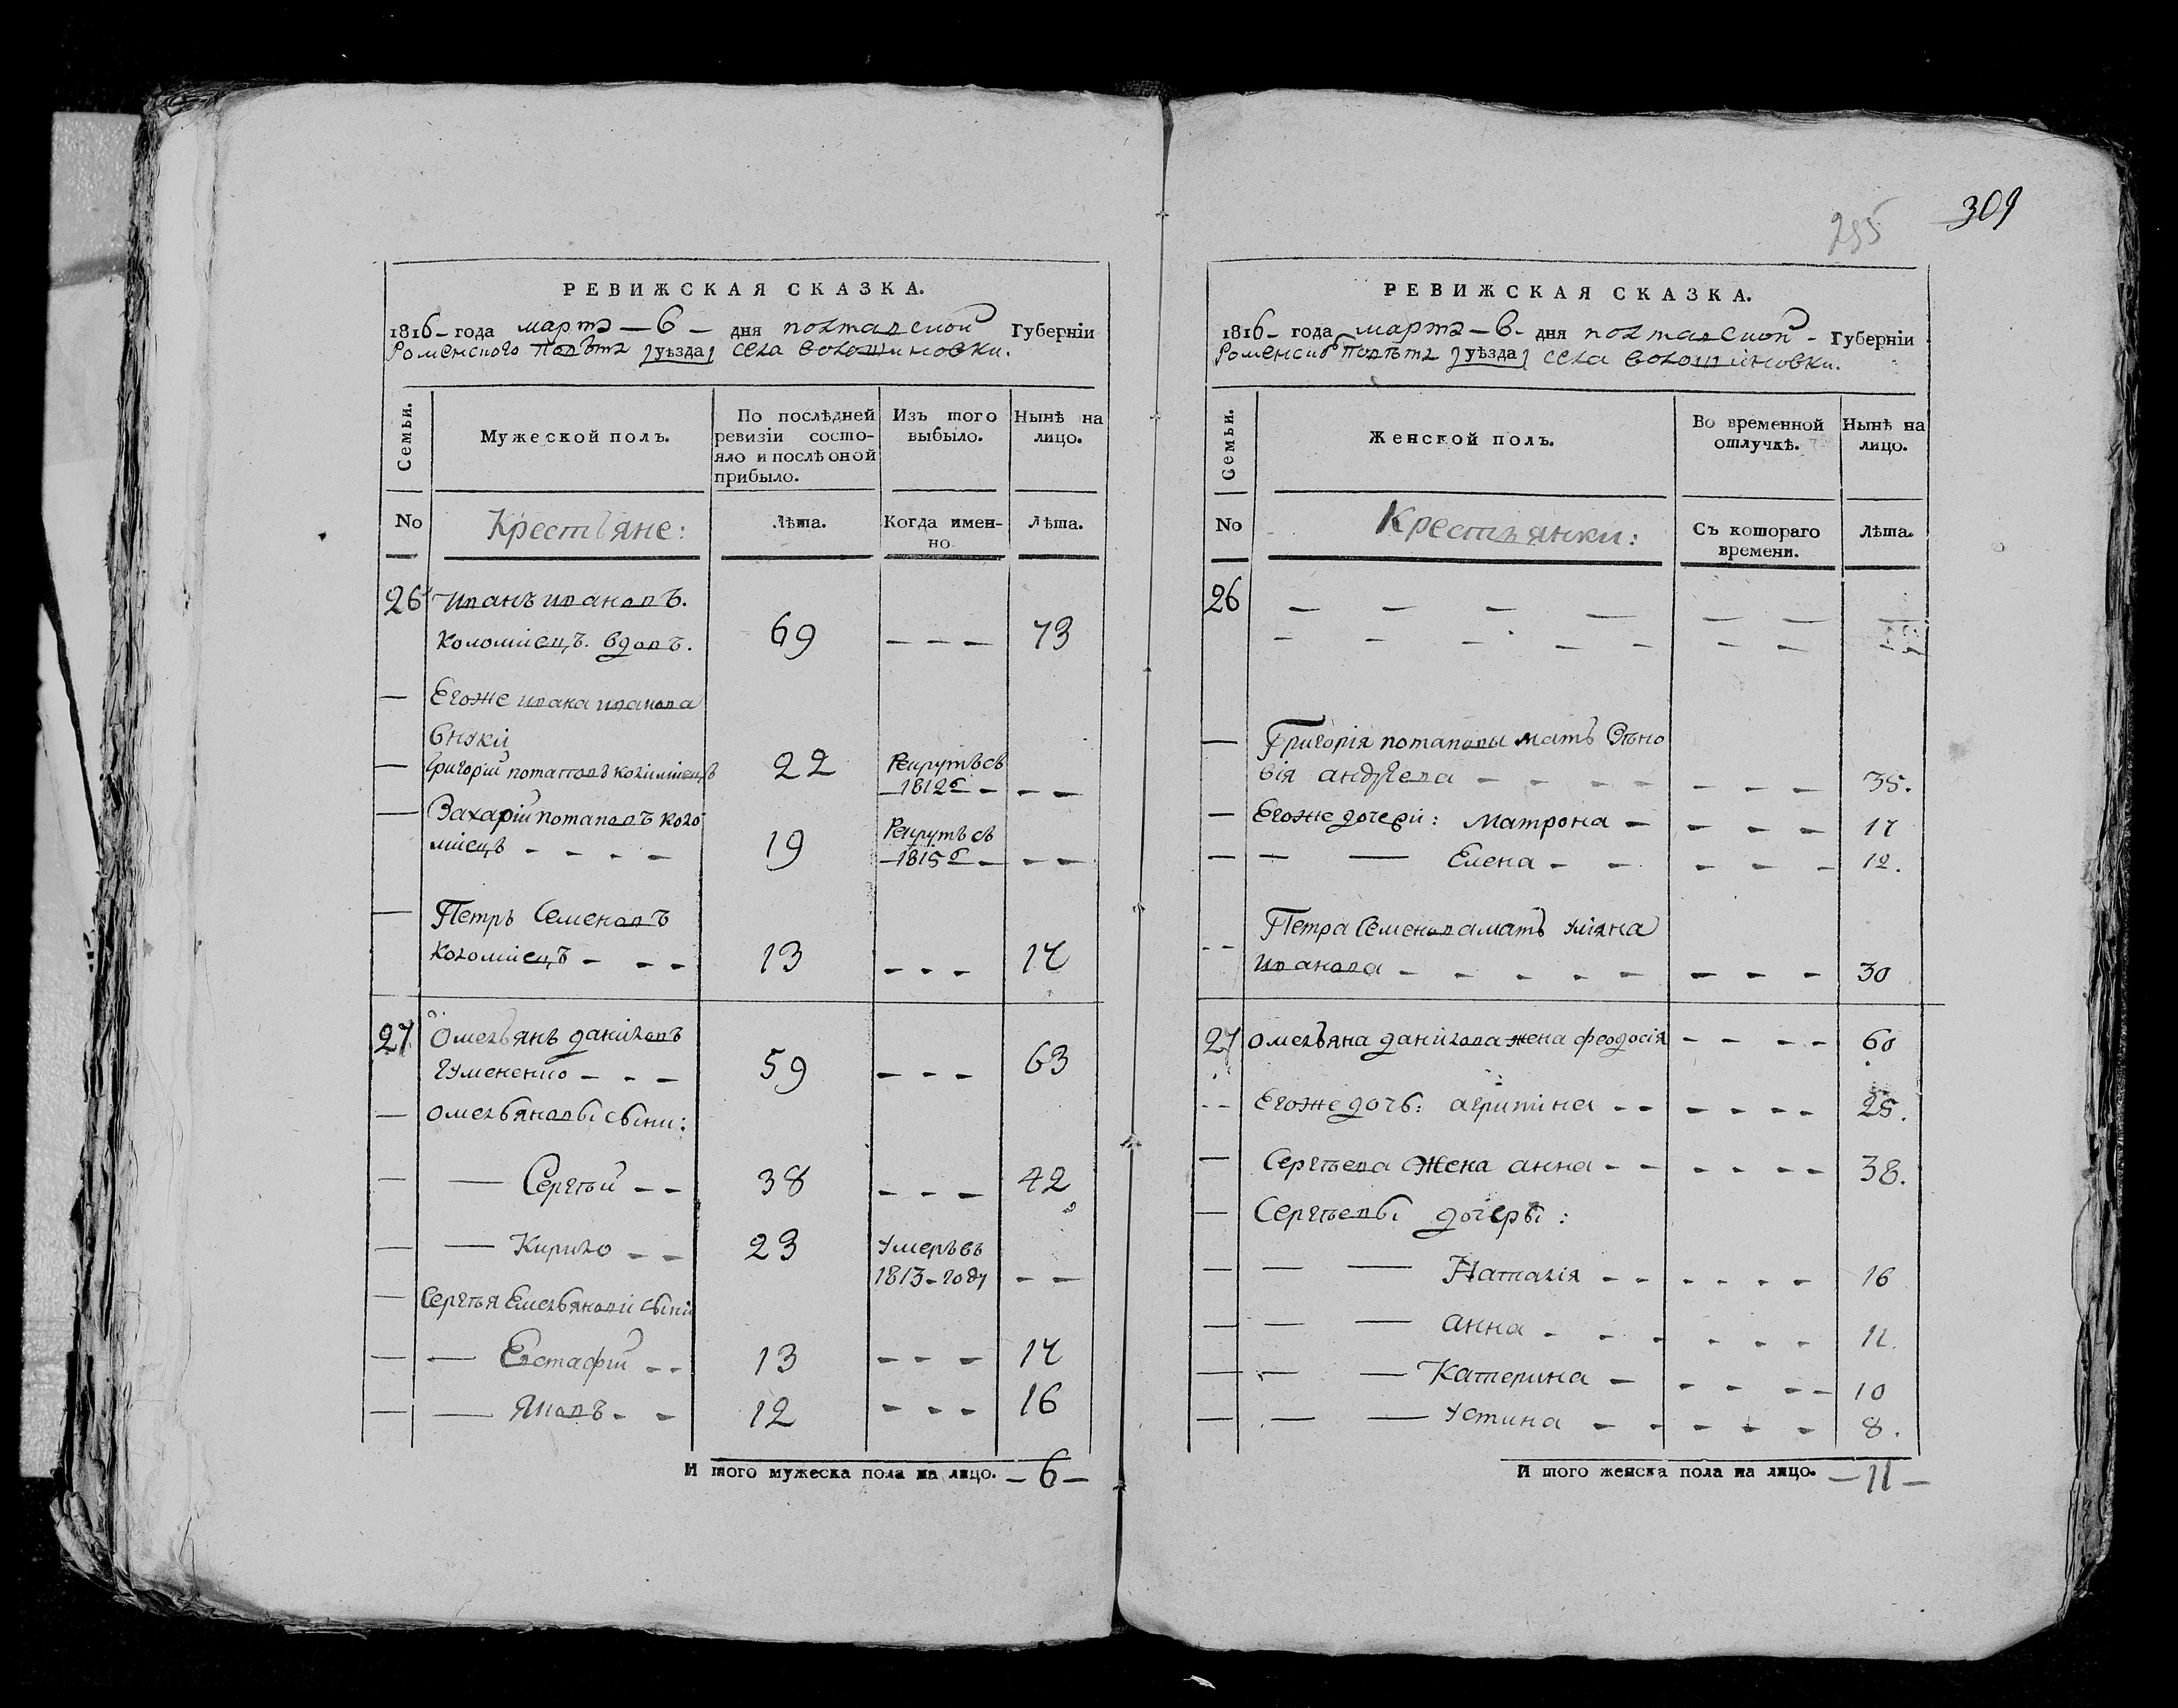 309
295
РЕВИЖСКАЯ СКАЗКА.
1816 - года марта — 6 — дня полтавской Губернїи
Роменского повѣта /уѣзда/ села волошиновки.
Семьи.
Мужеской полъ.
По послѣдней ревизїи состо-
яло и послѣ оной
прибыло.
Изъ того
выбыло.
Нынѣ на
лицо.
No
Крестьяне:
Лѣта.
Когда имен-
но.
Лѣта.
26 иванъ ивановъ.
коломіецъ. вдовъ. 69 — — — 73
— Егоже ивана иванова
внуки
— григорій потаповъ коломіецъ 22 Рекрутъ съ
1812 г — — —
— Захарій потаповъ коло
міецъ — — — — 19 Рекрутъ съ
1815 г — — —
— Петръ Семеновъ
коломіецъ — — — 13 — — — 17
27 Омельянъ даниловъ
гумененко — — — 59 — — — 63
— омельяновы сыни:
— — Сергѣй — — 38 — — — 42
— — Кирило — — 23 умеръ въ
1813 - году — —
— Сергѣя Емельянови сыни
— — Евстафій — — 13 — — — 17
— — яковъ — — 12 — — — 16
И того мужеска пола на лицо. — 6 —
РЕВИЖСКАЯ СКАЗКА.
1816 - года марта — 6 - дня полтавской - Губернїи
Роменског повѣта /уѣзда/ села волошиновки.
Семьи.
Женской полъ.
Во временной
отлучкѣ.
Нынѣ на
лицо.
No
Крестьянки:
Съ котораго
времени.
Лѣта.
26 — — — — — —
— — — — — — —
— Григорія потапова мать
андреева — — — — — — — 35.
— Егоже дочери: Матрона — — — — — 17
— — — Елена — — — — — — 12.
Петра Семенова мать уліяна
— — иванова — — — — — — — — — 30
27 омельяна данилова жена феодосія — — — — 60
— — Егоже дочь: агрипина — — — — — — 25.
— Сергѣева жена анна — — — — — — 38.
— Сергѣевы дочеры:
— — — Наталія — — — — — — 16
— — — анна — — — — — — 12.
— — — Катерина — — — — — 10
— — — Устина — — — — — 8.
И того женска пола на лицо. — 11 —